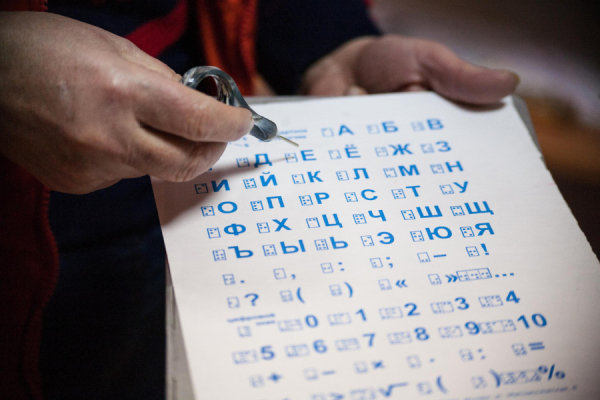 А Б В
Д Е Ё Ж З
И Й К Л М Н
О П Р С Т У
Ф Х Ц Ч Ш Щ
Ъ Ы Ь Э Ю Я
. , : ; – !
? ( ) « » ...
0 1 2 3 4
5 6 7 8 9 10
+ – × . : =
> √ ( ) %